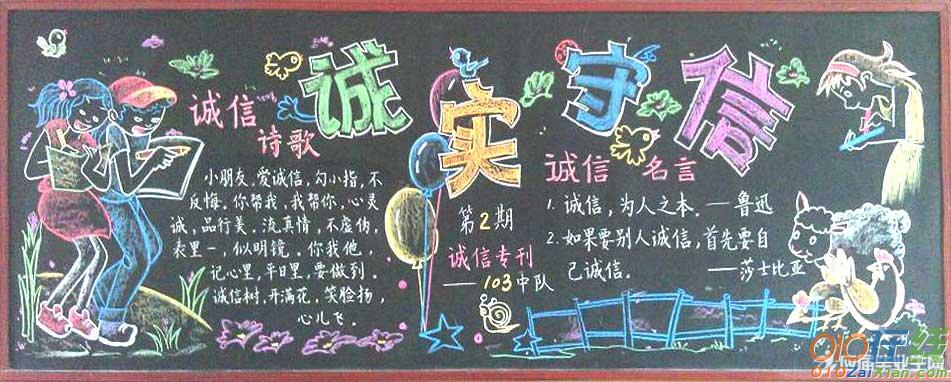 诚实守信
诚信
诗歌
小朋友，爱诚信，勾小指，不
反悔。你帮我，我帮你，心灵
诚，品行美。流真情，不虚伪，
表里一，似明镜。你我他，
记心里，平日里，要做到。
诚信树，开满花，笑脸扬，
心儿飞。
第2期
诚信专刊
—103中队
诚信 名言
1. 诚信，为人之本。—鲁迅
2. 如果要别人诚信，首先要自
己诚信。 —莎士比亚
010在线
010ZaiXian.com